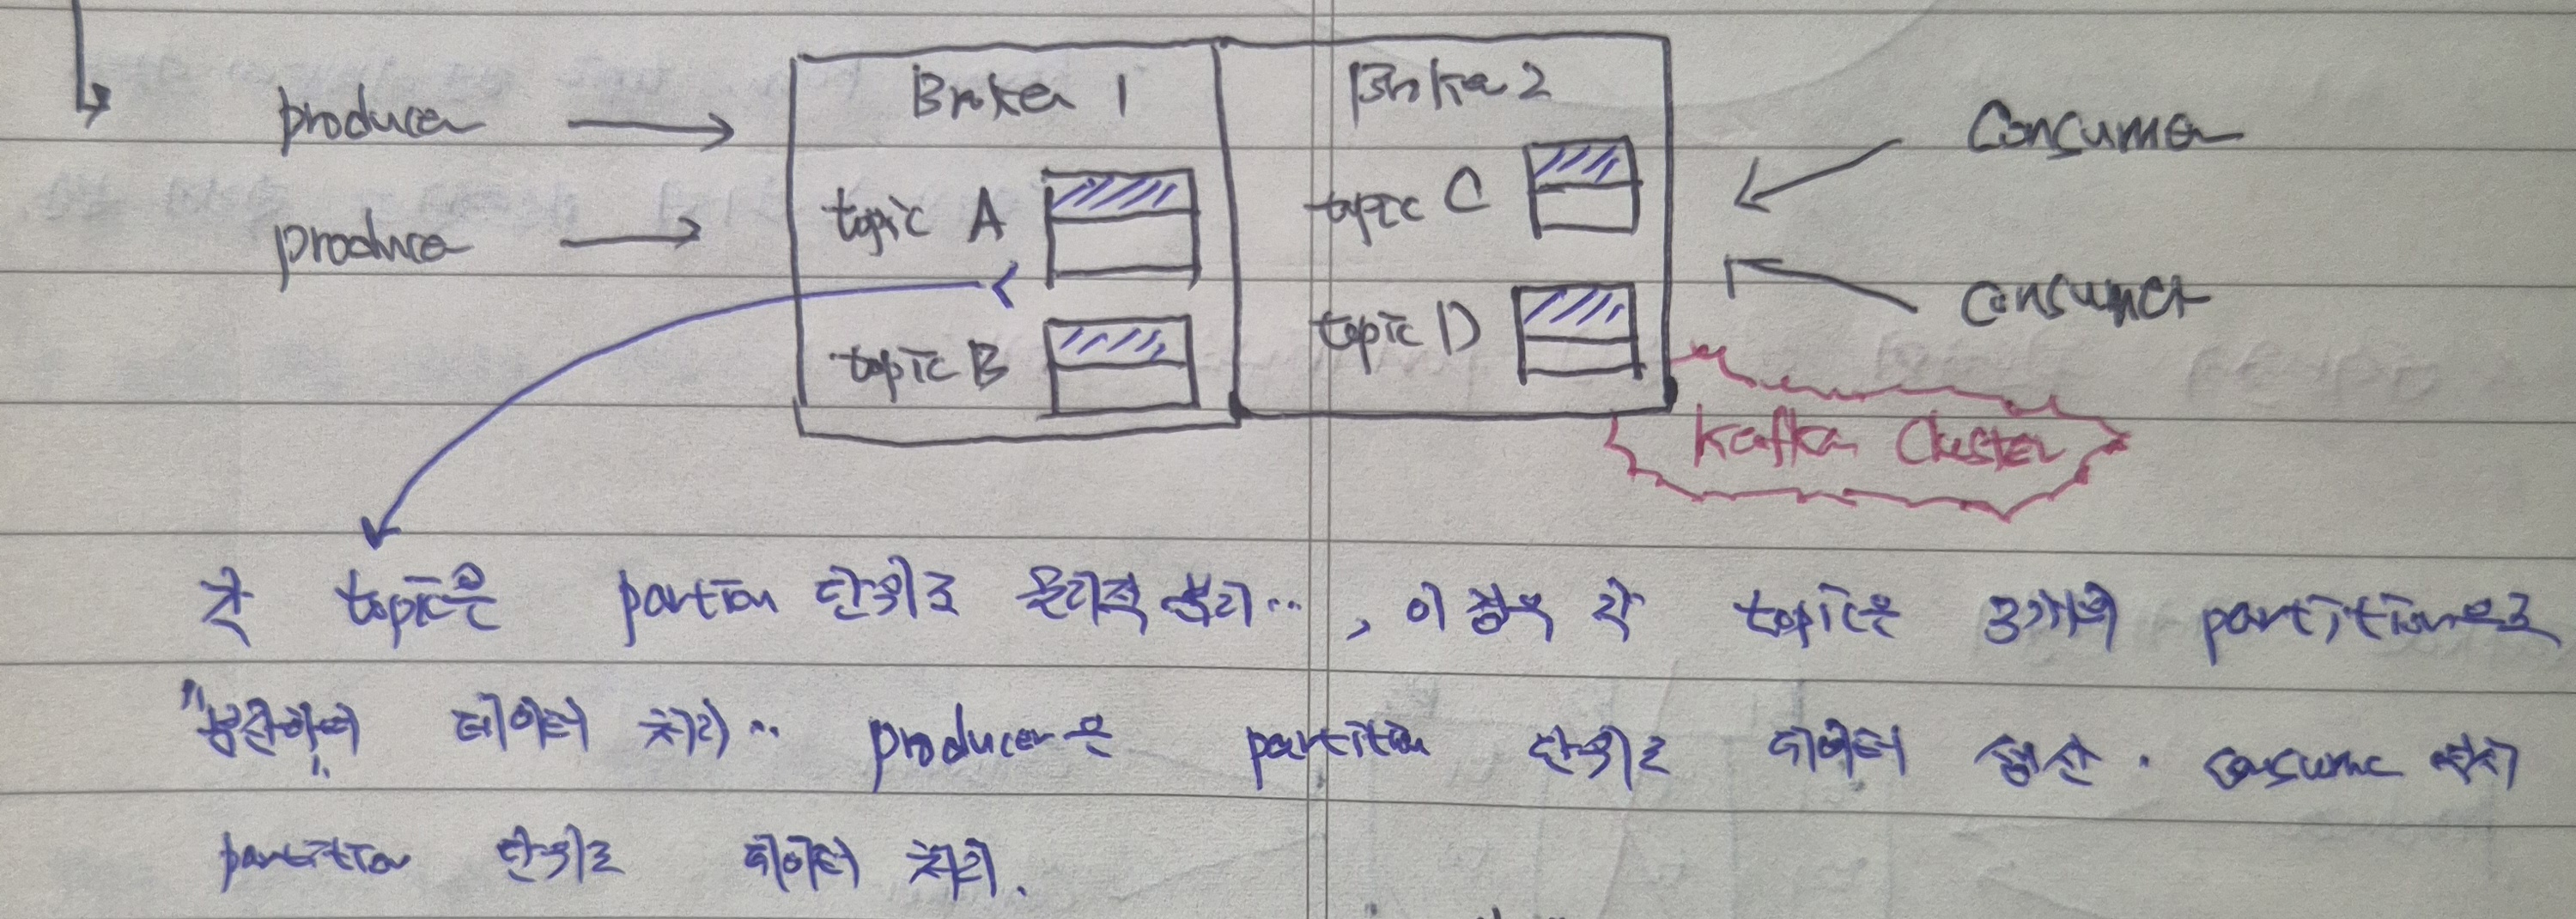 producer
producer
Broker 1
topic A
topic B
Broker 2
topic C
topic D
Consumer
consumer
Kafka Cluster
각 topic은 partion 단위로 물리적 분리.. , 이 경우 각 topic은 3개의 partition으로
"분산하여" 데이터 처리.. producer은 partition 단위로 데이터 생산. consume 역시
partition 단위로 데이터 처리.